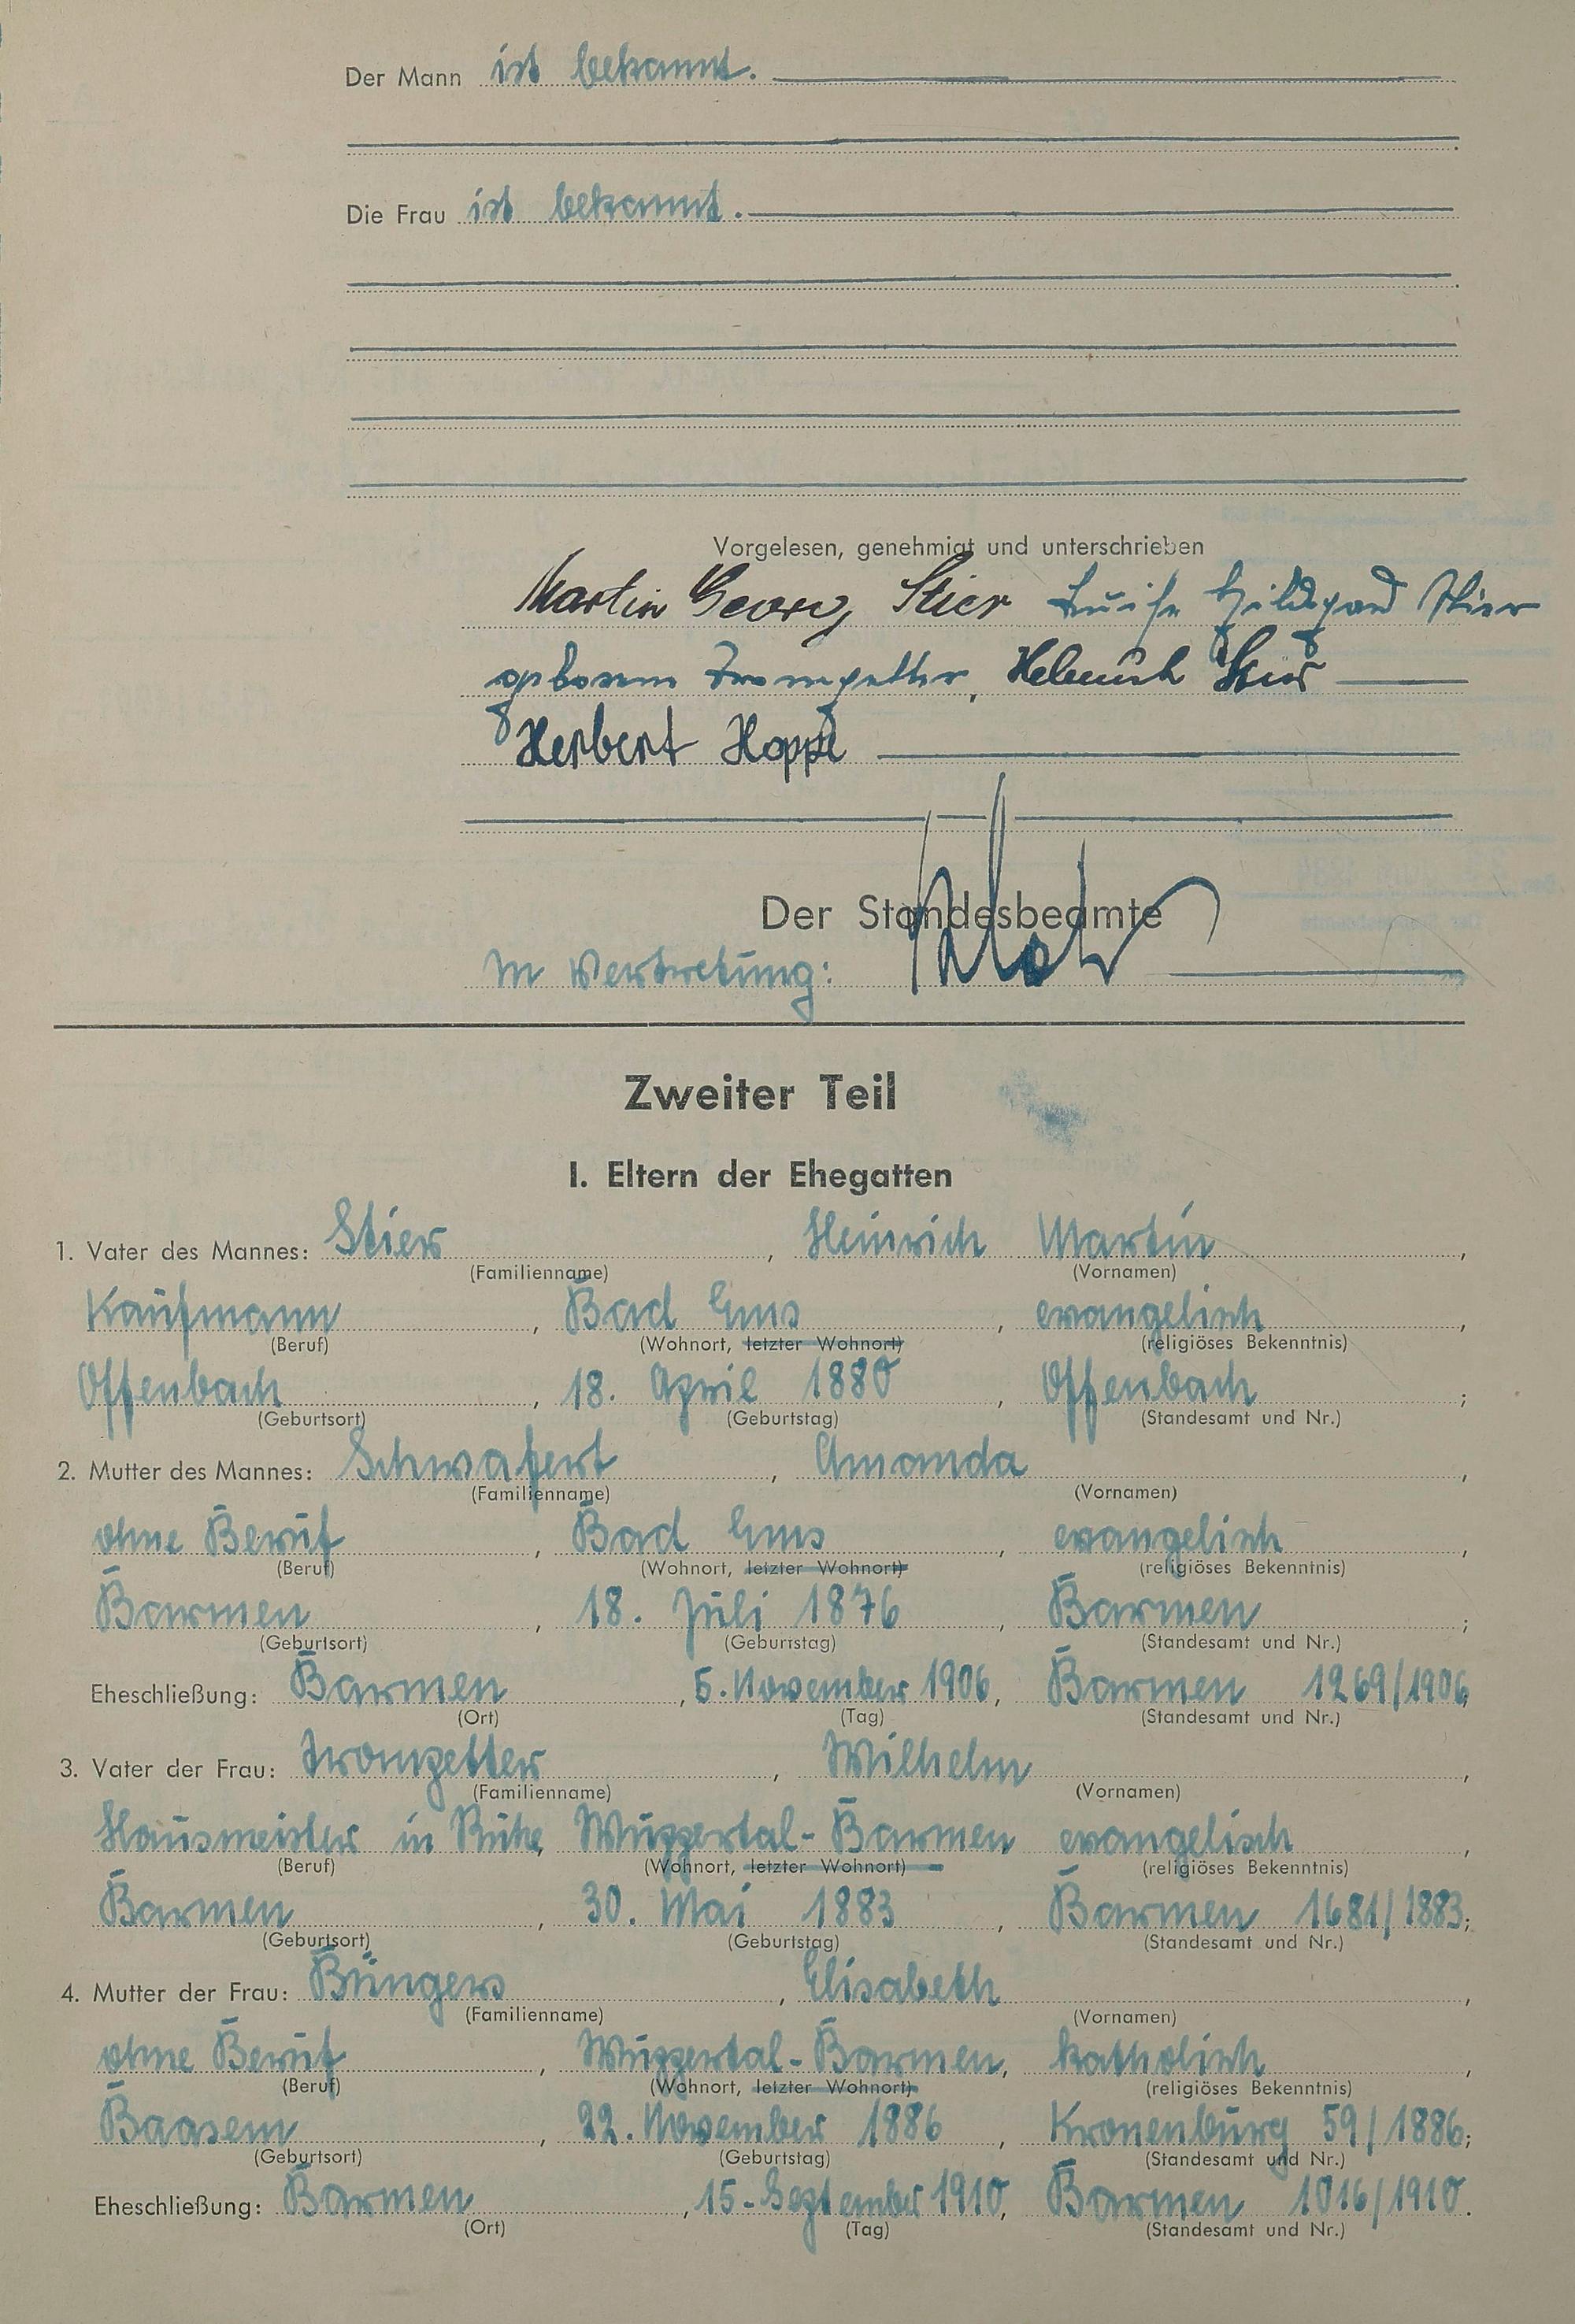 Der Mann ist bekannt.
Die Frau ist bekannt.
Vorgelesen, genehmigt und unterschrieben
Martin Georg Stier Luise Hildegard Stier
geborene Trompetter, Helmuth Stier
Herbert Hoppe
Der Standesbeamte
In Vertretung:
Zweiter Teil
I. Eltern der Ehegatten
1. Vater des Mannes: Stier, Heinrich Martin,
(Familienname) (Vornamen)
Kaufmann, Bad Ems, evangelisch,
(Beruf) (Wohnort, letzter Wohnort) (religiöses Bekenntnis)
Offenbach, 18. April 1880, Offenbach;
(Geburtsort) (Geburtstag) (Standesamt und Nr.)
2. Mutter des Mannes: Schwafert, Amanda,
(Familienname) (Vornamen)
ohne Beruf, Bad Ems, evangelisch,
(Beruf) (Wohnort, letzter Wohnort) (religiöses Bekenntnis)
Barmen, 18. Juli 1876, Barmen;
(Geburtsort) (Geburtstag) (Standesamt und Nr.)
Eheschließung: Barmen, 5. November 1906, Barmen 1269/1906,
(Ort) (Tag) (Standesamt und Nr.)
3. Vater der Frau: Trompetter, Wilhelm,
(Familienname) (Vornamen)
Hausmeister in Ruhe, Wuppertal-Barmen evangelisch,
(Beruf) (Wohnort, letzter Wohnort) (religiöses Bekenntnis)
Barmen, 30. Mai 1883, Barmen 1681/1883;
(Geburtsort) (Geburtstag) (Standesamt und Nr.)
4. Mutter der Frau: Büngers, Elisabeth,
(Familienname) (Vornamen)
ohne Beruf, Wuppertal-Barmen, katholisch,
(Beruf) (Wohnort, letzter Wohnort) (religiöses Bekenntnis)
Baasem, 22. November 1886, Kronenburg 59/1886;
(Geburtsort) (Geburtstag) (Standesamt und Nr.)
Eheschließung: Barmen, 15. September 1910, Barmen 1016/1910.
(Ort) (Tag) (Standesamt und Nr.)